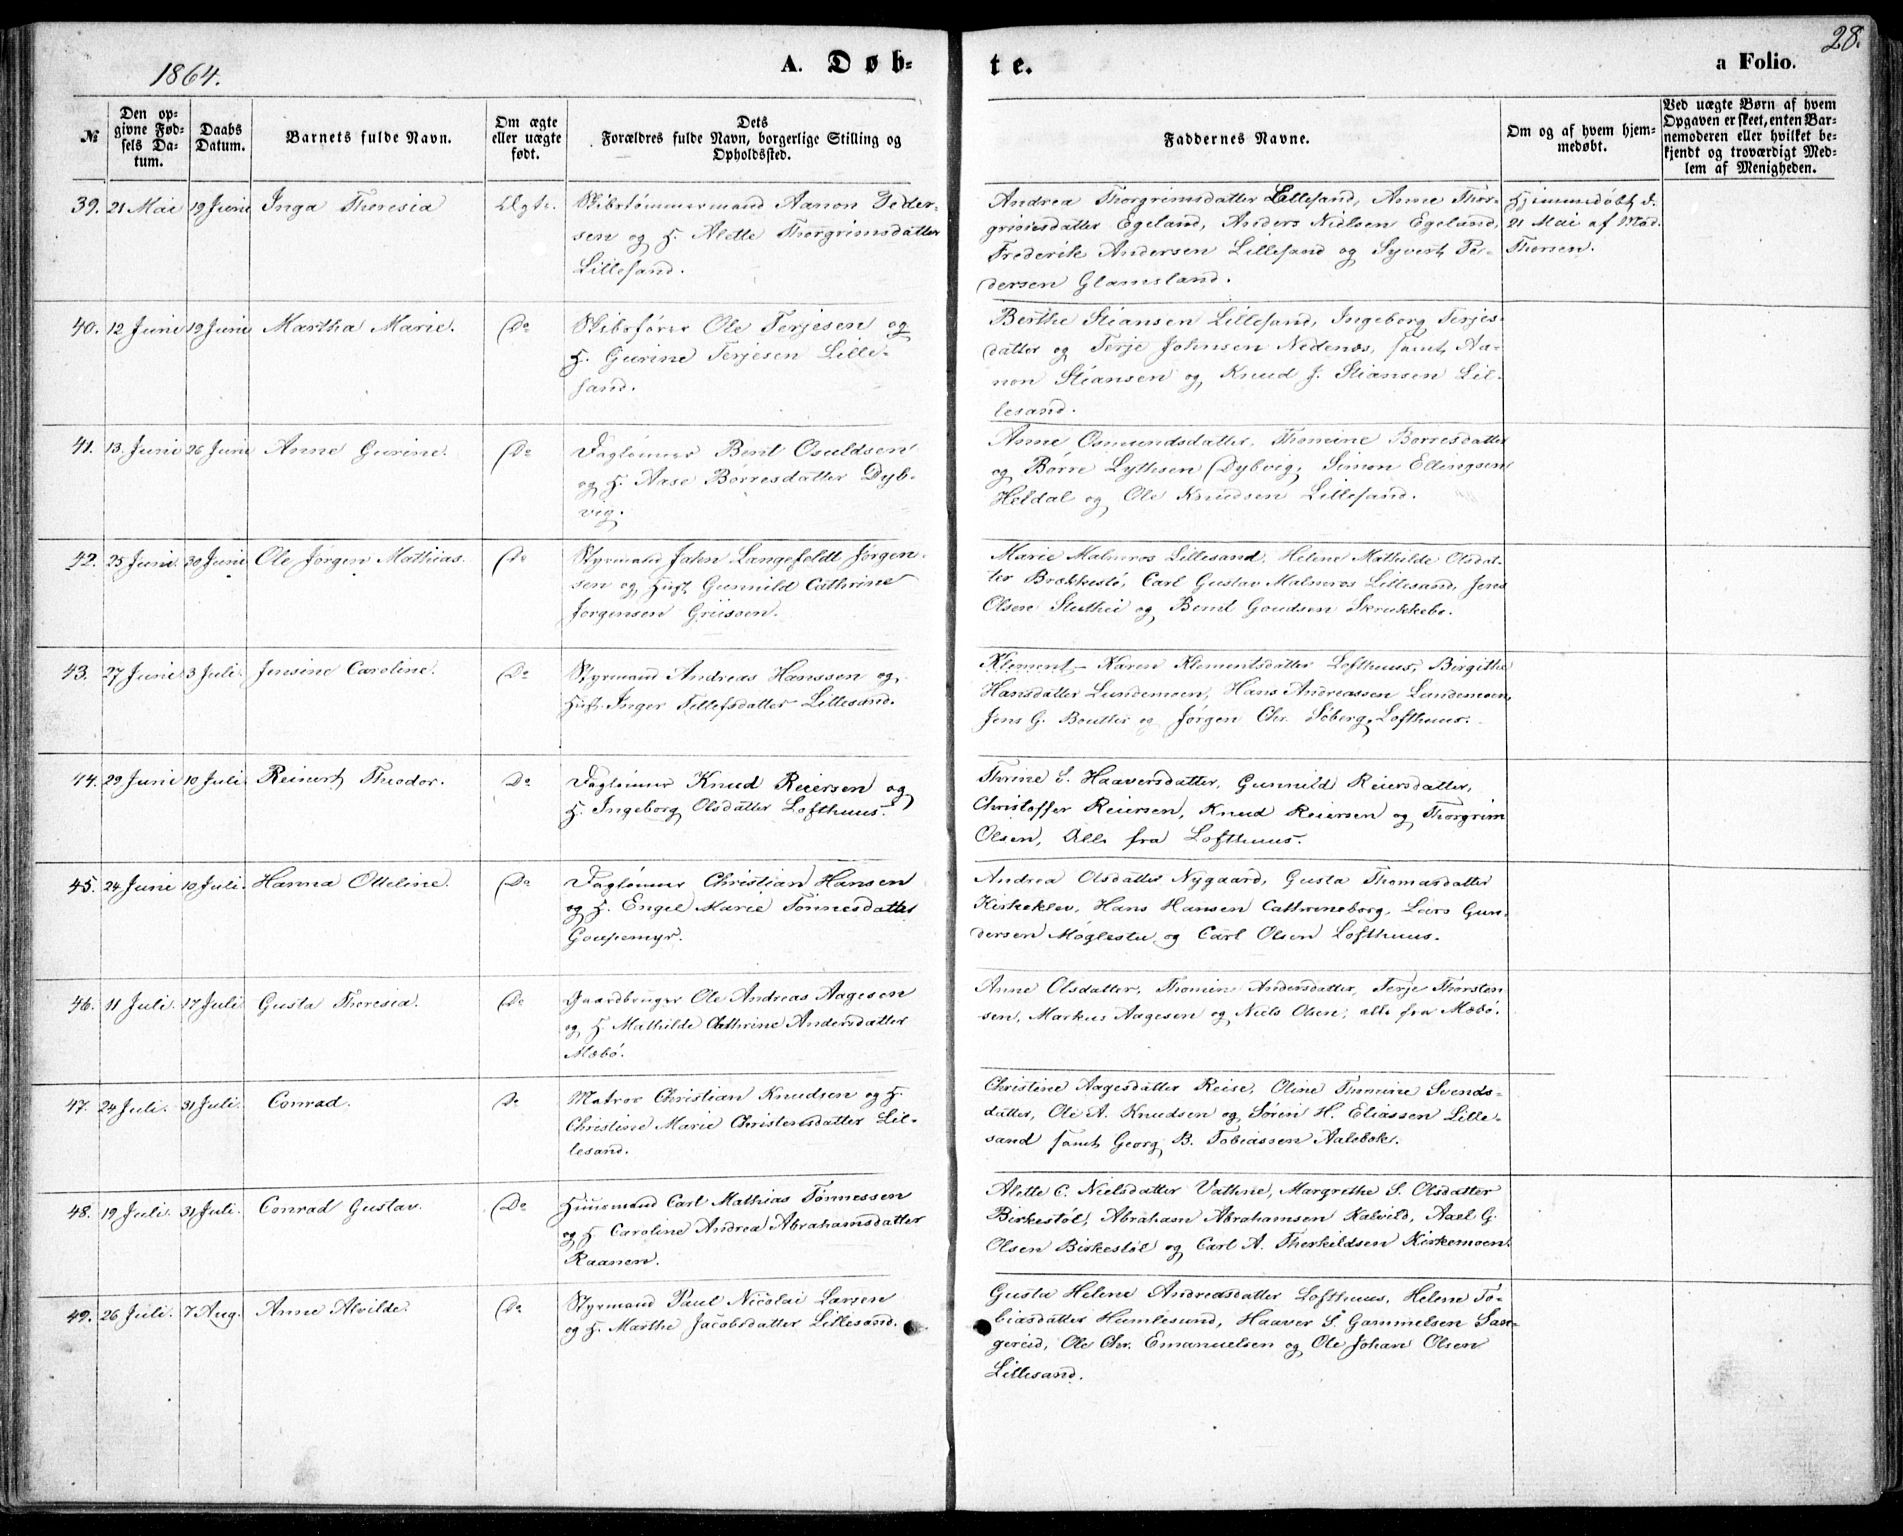 1864.
A. Døb-
te.
a Folio.
28.
№
Den op-
givne Fød-
sels Da-
tum.
Daabs
Datum.
Barnets fulde Navn.
Om ægte
eller uægte
født.
Dets
Forældres fulde Navn, borgerlige Stilling og
Opholdssted.
Faddernes Navne.
Om og af hvem hjem-
medøbt.
Ved uægte Børn af hvem
Opgaven er skeet, enten Bar-
nemoderen eller hvilket be-
kjendt og troværdigt Med-
lem af Menigheden.
39. 21 Mai 19 Juni Inga Theresia Ægte.
Skibstømmermand Aanon Peder-
sen og H. Alette Thorgrimsdatter
Lillesand.
Andrea Thorgrimsdatter Lillesand, Anne Thor-
grimsdatter Egeland, Anders Nielsen Egeland,
Frederik Andersen Lillesand og Syvert Pe-
dersen Glamsland.
Hjemmedøbt d.
21 Mai af Mad.
Thorsen.
40. 12 Juni 19 Juni Martha Marie. Do
Skibsfører Ole Terjesen og
H. Gurine Terjesen Lille-
sand.
Berthe Stiansen Lillesand, Ingeborg Terjes-
datter og Terje Johnsen Nedenæs, samt Aa-
non Stiansen og Knud J. Stiansen Lil-
lesand.
41. 13 Juni 26 Juni Anne Gurine. Do
Daglønner Berit Osuldsen
og H. Aase Børresdatter Dyb-
vig.
Anne Osmundsdatter, Thomine Børresdatter
og Børre Lyttesen Dybvig, Simon Ellingsen
Heldal og Ole Knudsen Lillesand.
42. 25 Juni 30 Juni Ole Jørgen Mathias. Do
Styrmand Jahn Langefeldt Jørgen-
sen og Hust. Gunnild Cathrine
Jørgensen Griisøen.
Marie Malmros Lillesand, Helene Mathilde Olsdat-
ter Brækkestø, Carl Gustav Malmros Lillesand, Jens
Olsen Stuthei og Bernt Goudsen Skrukkebo.
43. 27 Juni 3 Juli. Jensine Caroline. Do
Styrmand Andreas Hanssen og
Hust. Inger Tellefsdatter Lillesand.
Klement Karen Klementsdatter Lofthuus, Birgithe
Hansdatter Lundemoen, Hans Andreassen Lundemoen,
Jens G. Boutter og Jørgen Chr. Søberg, Lofthuus.
44. 29 Juni 10 Juli. Reinert Theodor. Do
Daglønner Knud Reiersen og
H. Ingeborg Olsdatter Lofthuus.
Thrine E. Haaversdatter, Gunnild Reiersdatter,
Christoffer Reiersen, Knud Reiersen og Thorgrim
Olsen, Alle fra Lofthuus.
45. 24 Juni 10 Juli. Hanna Otteline. Do
Daglønner Christian Hansen
og H. Engel Marie Tønnesdatter
Goupemyr.
Andrea Olsdatter Nygaard, Gusta Thomasdatter
Kirkeklev, Hans Hansen Cathrineborg, Lars Gun-
dersen Møglestu og Carl Olsen Lofthuus.
46. 11 Juli. 17 Juli. Gusta Theresia. Do
Gaardbruger Ole Andreas Aagesen
og H. Mathilde Cathrine Andersdatter
Mæbø.
Anne Olsdatter, Thomine Andersdatter, Terje Thorsten-
sen, Markus Aagesen og Niels Olsen; alle fra Mæbø.
47. 24 Juli. 31 Juli. Conrad. Do
Matros Christian Knudsen og H.
Christine Marie Christensdatter Lil-
lesand.
Christine Aagesdatter Reise, Oline Thomine Svends-
datter, Ole A. Knudsen og Søren H. Eliassen Lille-
sand samt Georg B. Tobiassen Aalebæk.
48. 19 Juli. 31 Juli. Conrad Gustav. Do
Huusmand Carl Mathias Tønnessen
og H. Caroline Andrea Abrahamsdatter
Raanen.
Alette C. Nielsdatter Vathne, Margrethe S. Olsdatter
Birkestøl, Abraham Abrahamsen Kalvild, Axel G.
Olsen Birkestøl og Carl A. Therkildsen Kirkemoen.
49. 26 Juli. 7 Aug. Anne Alvilde. Do
Styrmand Paul Nicolai Larsen
og H. Marthe Jacobsdatter Lillesand.
Gusta Helene Andreasdatter Lofthuus, Helene To-
biasdatter Humlesund, Haaver S. Gammelsen San-
gereid, Ole Chr. Emanuelsen og Ole Johan Olsen
Lillesand.